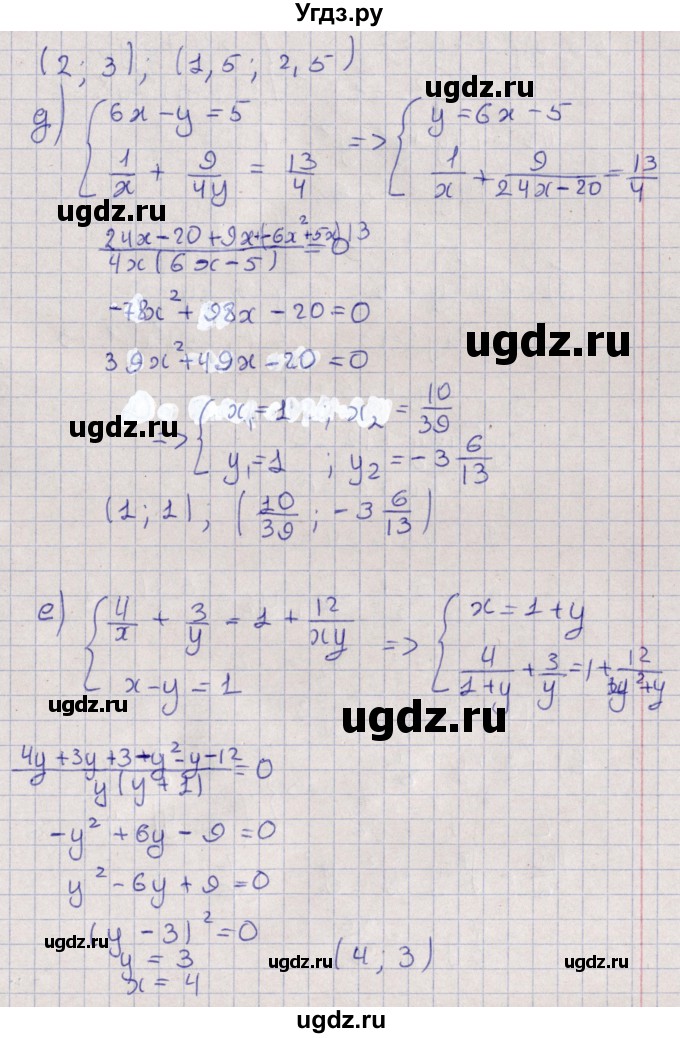 Угдз.ру
(2 ; 3) ; (1,5 ; 2,5)
ugdz.ru
д) { 6x - y = 5 ; 1/x + 9/4y = 13/4 => { y = 6x - 5 ; 1/x + 9/(24x - 20) = 13/4
ugdz.ru
(24x - 20 + 9x + (-6x² + 5x) 13) / (4x(6x - 5)) = 0
-78x² + 98x - 20 = 0
ugdz.ru
39x² + 49x - 20 = 0
=> { x₁ = 1 ; x₂ = 10/39
ugdz.ru
y₁ = 1 ; y₂ = -3 6/13
(1 ; 1) ; (10/39 ; -3 6/13)
ugdz.ru
е) { 4/x + 3/y = 1 + 12/xy ; x - y = 1 => { x = 1 + y ; 4/(1+y) + 3/y = 1 + 12/(y² + y)
ugdz.ru
ugdz.ru
(4y + 3y + 3 - y² - y - 12) / (y(y + 1)) = 0
-y² + 6y - 9 = 0
y² - 6y + 9 = 0
(y - 3)² = 0
ugdz.ru
y = 3
(4 ; 3)
ugdz.ru
ugdz.ru
x = 4
ugdz.ru